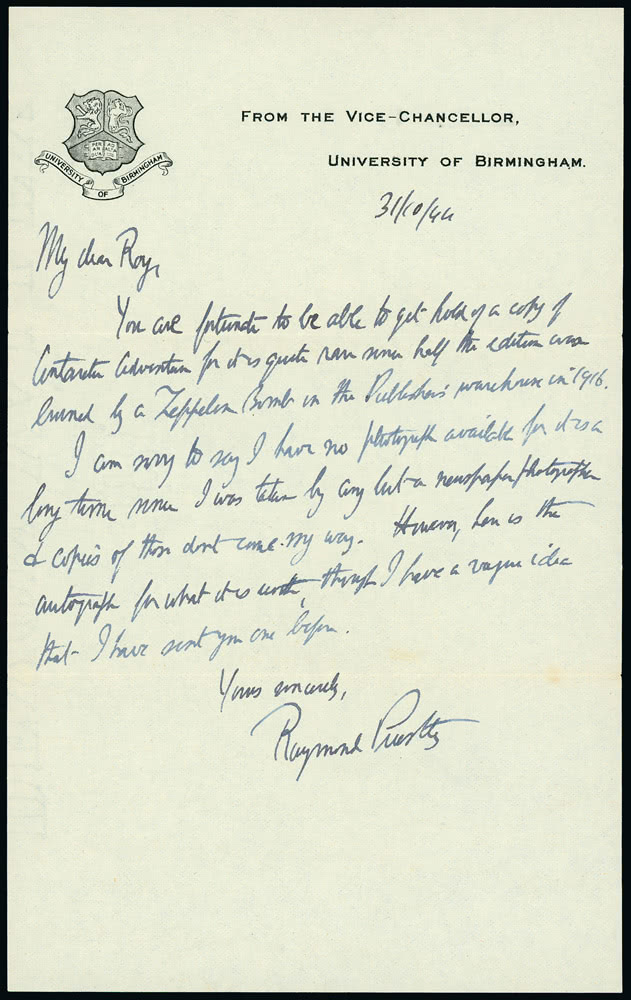 FROM THE VICE-CHANCELLOR,
UNIVERSITY OF BIRMINGHAM.
PER AD
ARDUA ALTA
UNIVERSITY OF BIRMINGHAM
31/10/44
My dear Roy,
You are fortunate to be able to get hold of a copy of
Antarctic Adventure for it is quite rare since half the edition was
burned by a Zeppelin Bomb in the Publisher's warehouse in 1916.
I am sorry to say I have no photograph available for it is a
long time since I was taken by any but a newspaper photographer
& copies of those don't come my way. However, here is the
autograph for what it is worth, though I have a vague idea
that I have sent you one before.
Yours sincerely,
Raymond Priestley